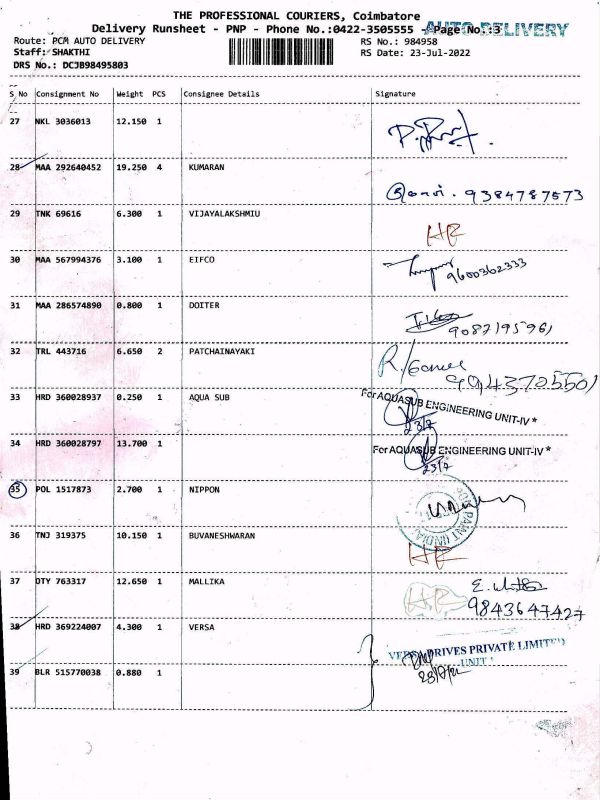 THE PROFESSIONAL COURIERS, Coimbatore
Delivery Runsheet - PNP - Phone No.:0422-3505555 - Page No.:3
AUTO DELIVERY
Route: PCM AUTO DELIVERY
RS No.: 984958
Staff: SHAKTHI
RS Date: 23-Jul-2022
DRS No.: DCJB98495803
S No Consignment No Weight PCS Consignee Details Signature
27 NKL 3036013 12.150 1
28 MAA 292640452 19.250 4 KUMARAN
9384787573
29 TNK 69616 6.300 1 VIJAYALAKSHMIU
HR
30 MAA 567994376 3.100 1 EIFCO
9600362333
31 MAA 286574890 0.800 1 DOITER
9087195961
32 TRL 443716 6.650 2 PATCHAINAYAKI
9943705501
33 HRD 360028937 0.250 1 AQUA SUB
For AQUASUB ENGINEERING UNIT-IV *
23/7
34 HRD 360028797 13.700 1
For AQUASUB ENGINEERING UNIT-IV *
23/7
35 POL 1517873 2.700 1 NIPPON
PAINT (INDIA)
36 TNJ 319375 10.150 1 BUVANESHWARAN
HR
37 OTY 763317 12.650 1 MALLIKA
HR
9843647427
38 HRD 369224007 4.300 1 VERSA
DRIVES PRIVATE LIMITED
UNIT
39 BLR 515770038 0.880 1